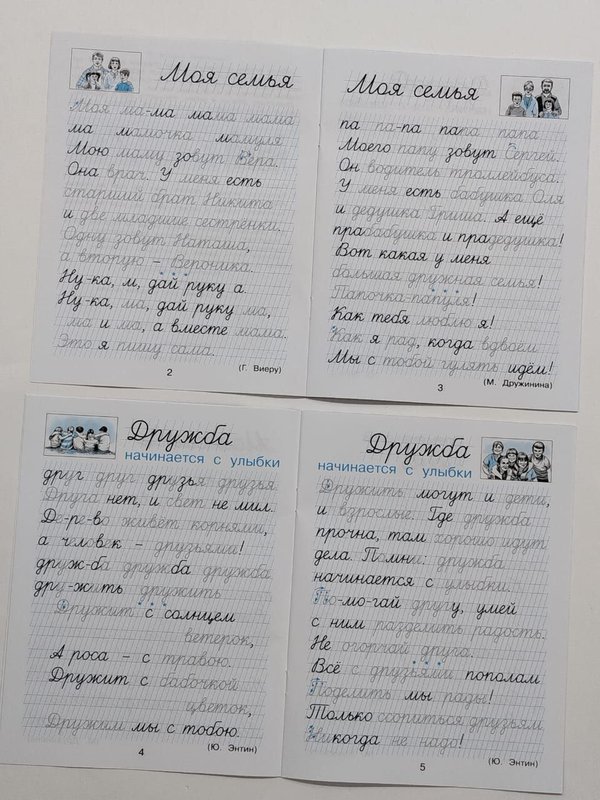 Моя семья
Моя ма-ма мама мама
ма мамочка мамуля
Мою маму зовут Вера.
Она врач. У меня есть
старший брат Никита
и две младшие сестрёнки.
Одну зовут Наташа,
а вторую – Вероника.
Ну-ка, м, дай руку а.
Ну-ка, ма, дай руку ма,
ма и ма, а вместе мама.
Это я пишу сама.
(Г. Виеру)
2
Моя семья
па па-па папа папа
Моего папу зовут Сергей.
Он водитель троллейбуса.
У меня есть бабушка Оля
и дедушка Гриша. А ещё
прабабушка и прадедушка!
Вот какая у меня
большая дружная семья!
Папочка-папуля!
Как тебя люблю я!
Как я рад, когда вдвоём
Мы с тобой гулять идём!
(М. Дружинина)
3
Дружба
начинается с улыбки
друг друг друзья друзья
Друга нет, и свет не мил.
Де-ре-во живёт корнями,
а человек – друзьями!
друж-ба дружба дружба
дру-жить дружить
Дружит с солнцем
ветерок,
А роса – с травою.
Дружит с бабочкой
цветок,
Дружим мы с тобою.
(Ю. Энтин)
4
Дружба
начинается с улыбки
Дружить могут и дети,
и взрослые. Где дружба
прочна, там хорошо идут
дела. Помни: дружба
начинается с улыбки.
По-мо-гай другу, умей
с ним разделить радость.
Не огорчай друга.
Всё с друзьями пополам
Поделить мы рады!
Только ссориться друзьям
Никогда не надо!
(Ю. Энтин)
5